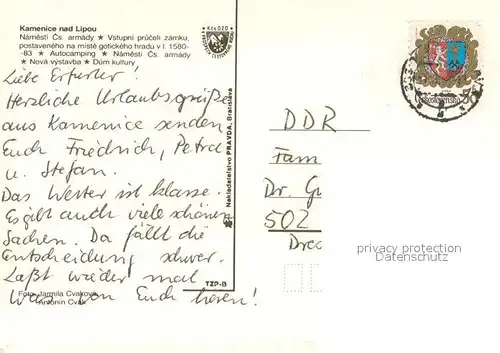 Kamenice nad Lipou
Náměstí Čs. armády ★ Vstupní průčelí zámku,
postaveného na místě gotického hradu v l. 1580-
-83 ★ Autocamping ★ Náměstí Čs. armády
★ Nová výstavba ★ Dům kultury
Kčs 0,20
Liebe Erfurter!
Herzliche Urlaubsgrüße
aus Kamenice senden
Euch Friedrich, Petra
u. Stefan.
Das Wetter ist klasse.
Es gibt auch viele schönen
Sachen. Da fällt die
Entscheidung schwer.
Laßt wieder mal
was von Euch hören!
Foto: Jarmila Cvaková
Antonín Cvak
Nakladatelstvo PRAVDA, Bratislava
TZP-B
Československo
DDR
Fam
Dr. G
502
Dre
privacy protection
Datenschutz